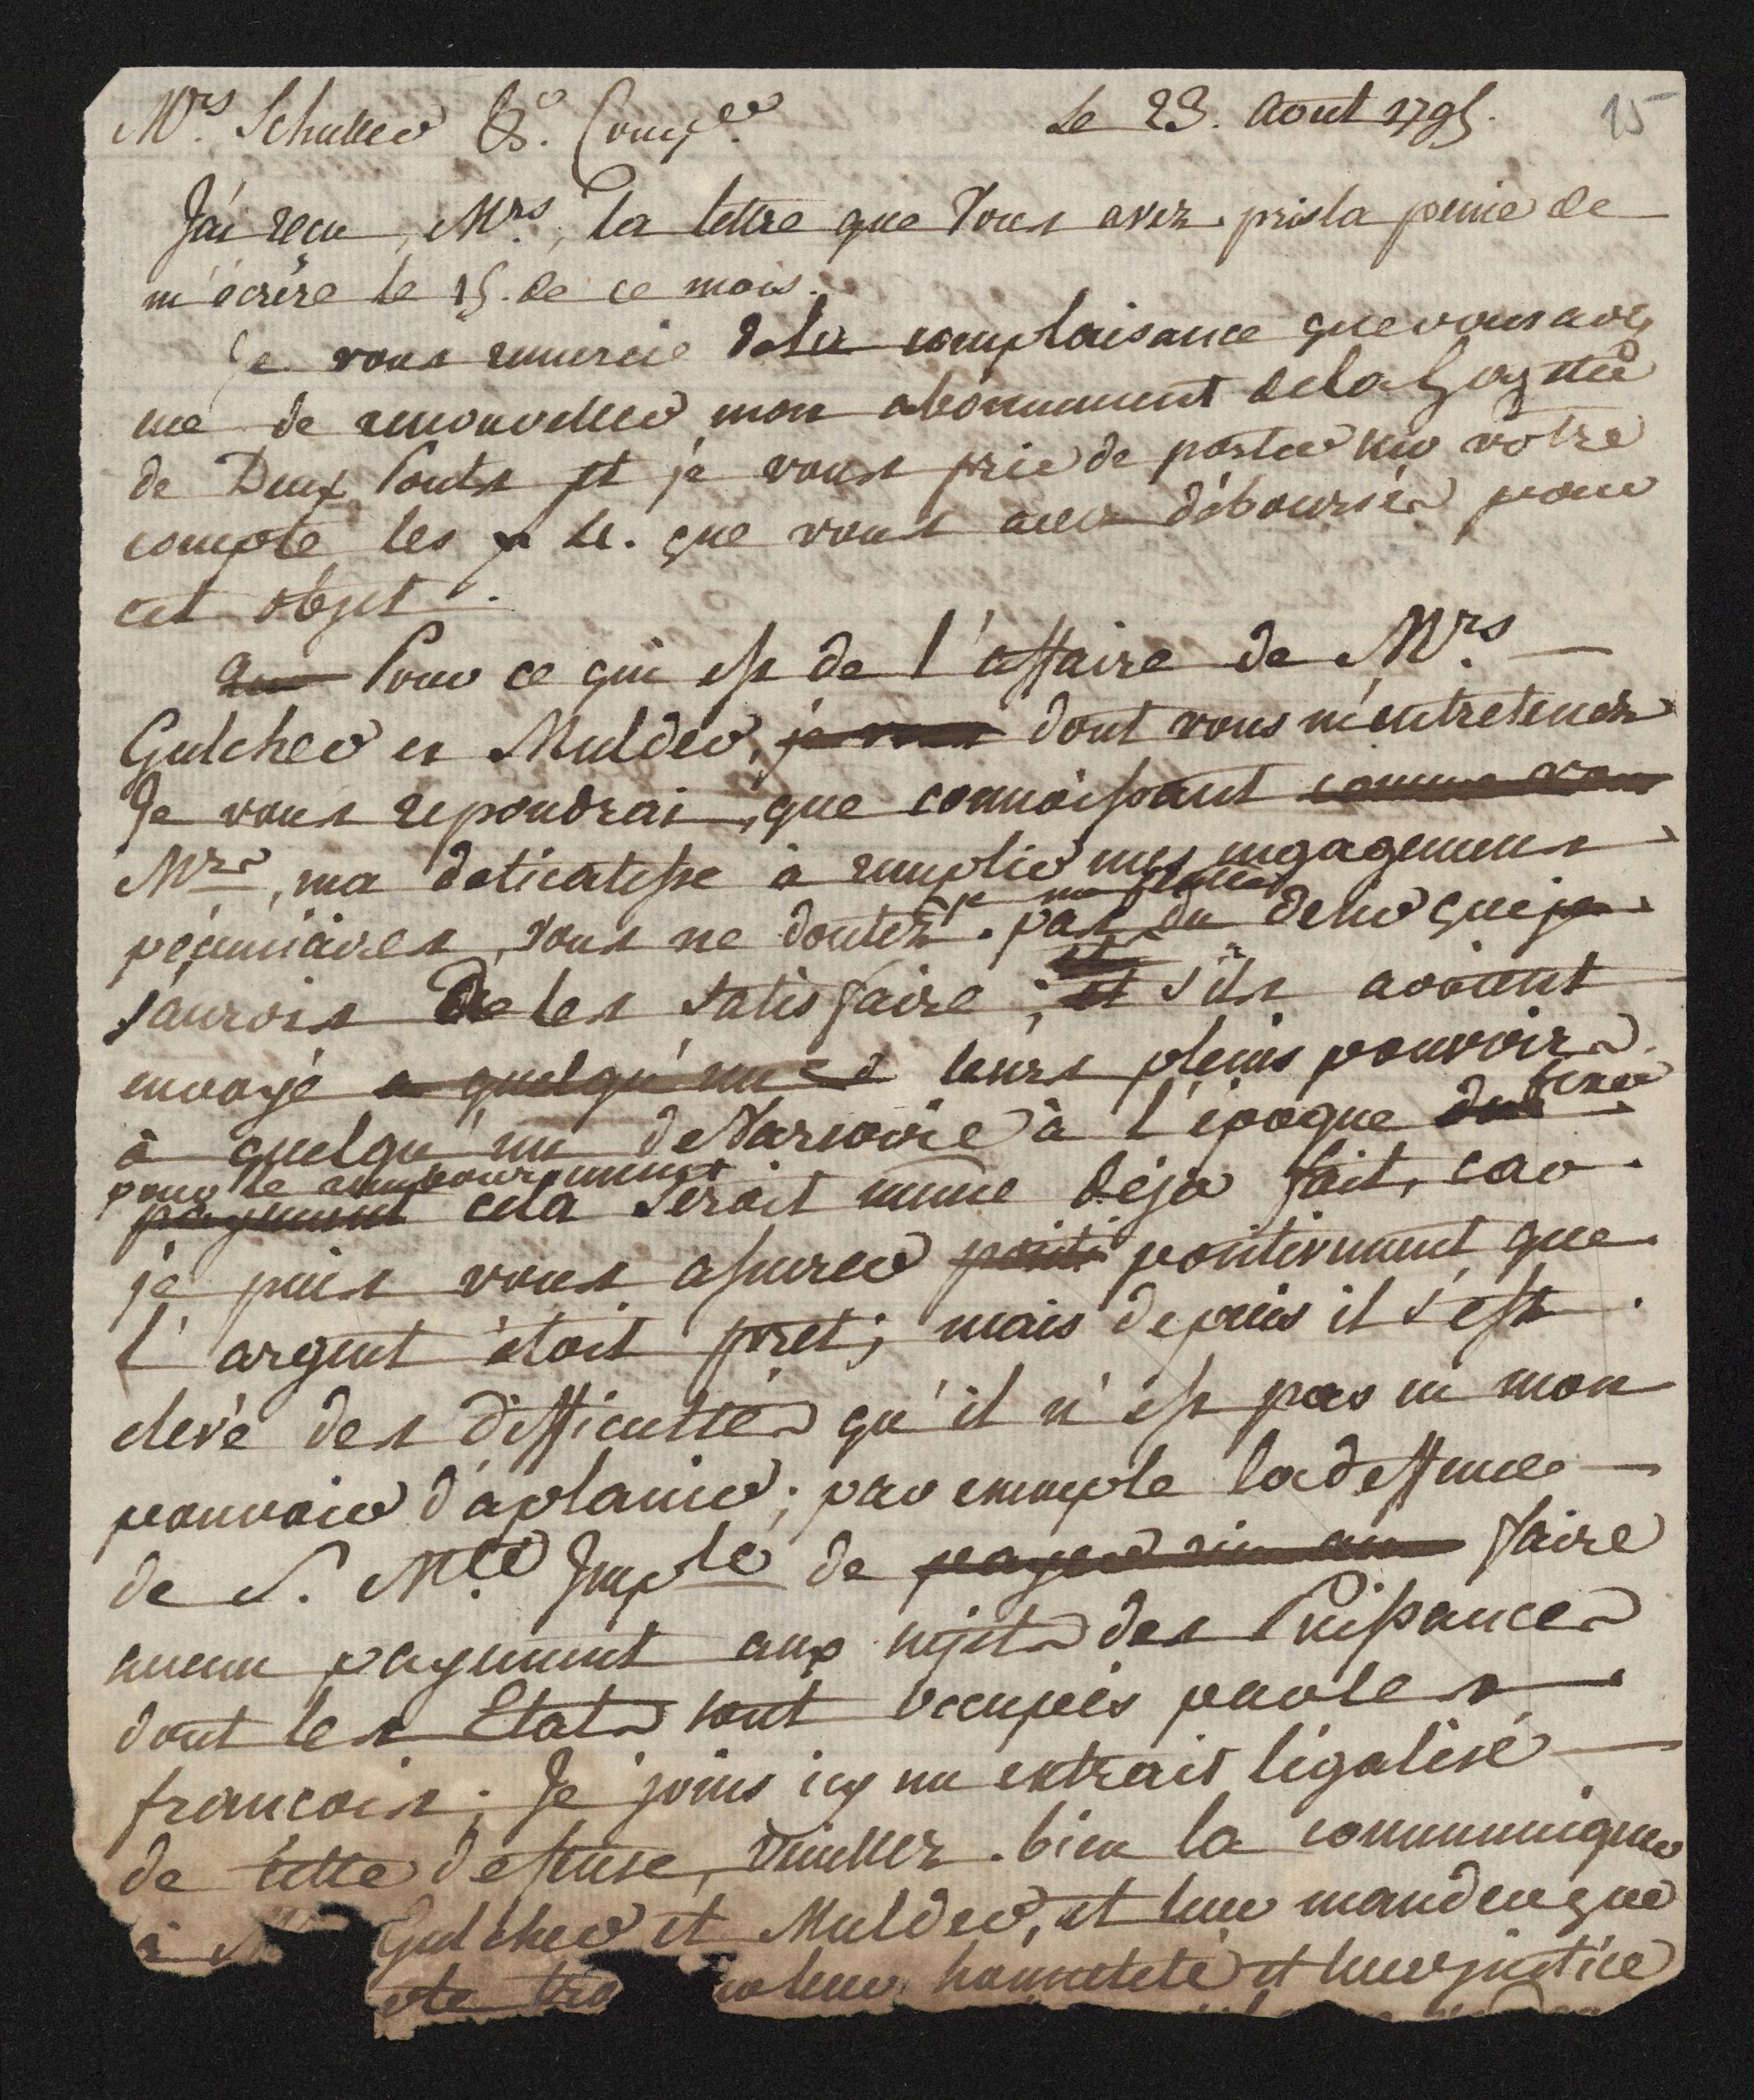 Mrs. Schuller & Compe. Le 23. Aout 1795. 15
J'ai reçu, Mrs., la lettre que Vous avez pris la peine de
m'écrire le 15. de ce mois.
Je vous remercie de la complaisance que vous avez
me de renouveller mon abonnement de la Gazette
de Deux Ponts et je vous prie de porter sur votre
compte les que vous avez déboursés pour
cet objet.
Pour ce qui est de l'affaire de Mrs.
Gulcher et Mulder, je vous dont vous m'entretenez
Je vous repondrai, que connoissant comme vous
Mrs, ma delicatesse à remplir mes engagemens
pécuniaires, vous ne doutez pas du desir que je
je me
saurois de les satisfaire; et s'ils avoient
envoyé a quelqu'un leurs pleins pouvoirs
à quelqu'un de Varsovie à l'époque du fixée
pour le remboursement
payement cela seroit meme deja fait, car
je puis vous assurer positi positivement que
l'argent étoit pret; mais depuis il s'est
elevé des difficultés qu'il n'est pas en mon
pouvoir d'aplanir; par exemple la deffence
de S. Mté Imple de payer rien au faire
aucun payement aux sujets des Puissances
dont les Etats sont occupés par les
francois; Je joins icy un extrait légalisé
de cette defense, veuillez bien la communiquer
à Gulcher et Mulder, et leur mander que
leur honnetteté et leur justice